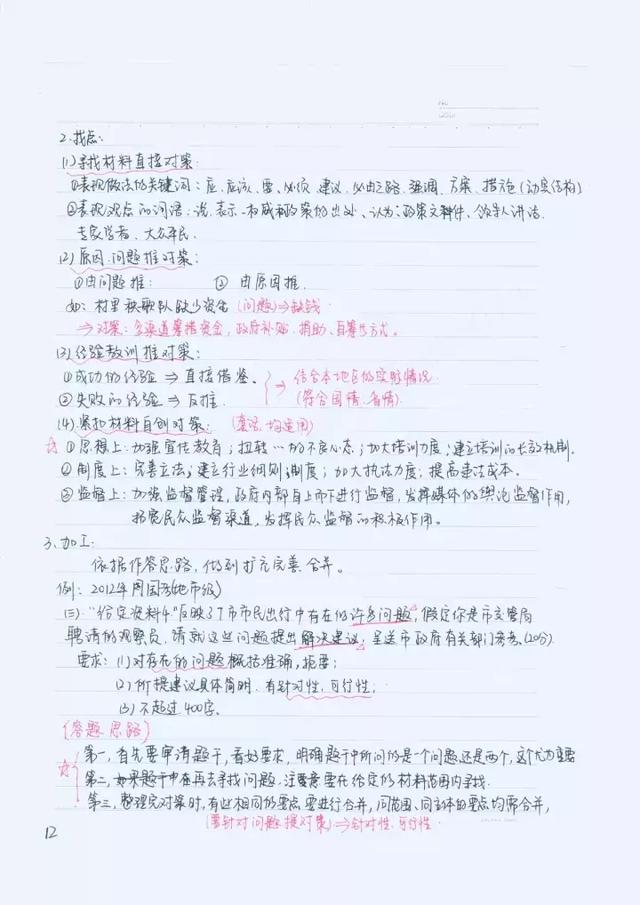 2.找点:
(1)寻找材料直接对策:
①表现做法的关键词:应、应该、要、必须、建议、必由之路、强调、方案、措施(动宾结构)
②表现观点的词语:说、表示 权威政策的出处、认为:政策文件、领导人讲话
专家学者、大众平民.
(2)原因.问题推对策:
①由问题推: ② 由原因推.
如:村里秧歌队缺少资金 (问题)⇒缺钱
⇒对策:多渠道筹措资金,政府补贴、捐助、自筹等方式。
(3)经验教训推对策:
①成功的经验 ⇒ 直接借鉴、 ⇒ 结合本地区的实际情况
②失败的经验 ⇒ 反推. (符合国情、省情)
(4)紧扣材料自创对策: 
☆①思想上:加强宣传教育;扭转…的不良心态;加大培训力度;建立培训的长效机制.
②制度上:完善立法;建立行业细则,制度;加大执法力度,提高违法成本.
③监督上:加强监督管理,政府内部自上而下进行监督,发挥媒体的舆论监督作用,
拓宽民众监督渠道,发挥民众监督的积极作用。
3、加工:
依据作答思路,做到扩充完善、合并。
例:2012年国考(地市级)
(三)"给定资料4"反映了T市市民出行中存在的许多问题,假定你是市交管局
聘请的观察员,请就这些问题提出解决建议,呈送市政府有关部门参考.(20分)
要求:(1)对存在的问题概括准确,扼要;
(2)所提建议具体简明、有针对性,可行性;
(3)不超过400字.
{答题思路}
第一,首先要审清题干,看好要求,明确题干中所问的是一个问题,还是两个,这个尤为重要
☆第二,再去寻找问题.注意要在给定的材料范围内寻找.
第三,整理完对策时,有过相同的要点要进行合并,同范围、同主体的要点均需合并,
(要针对问题提对策)⇒针对性、可行性.
12